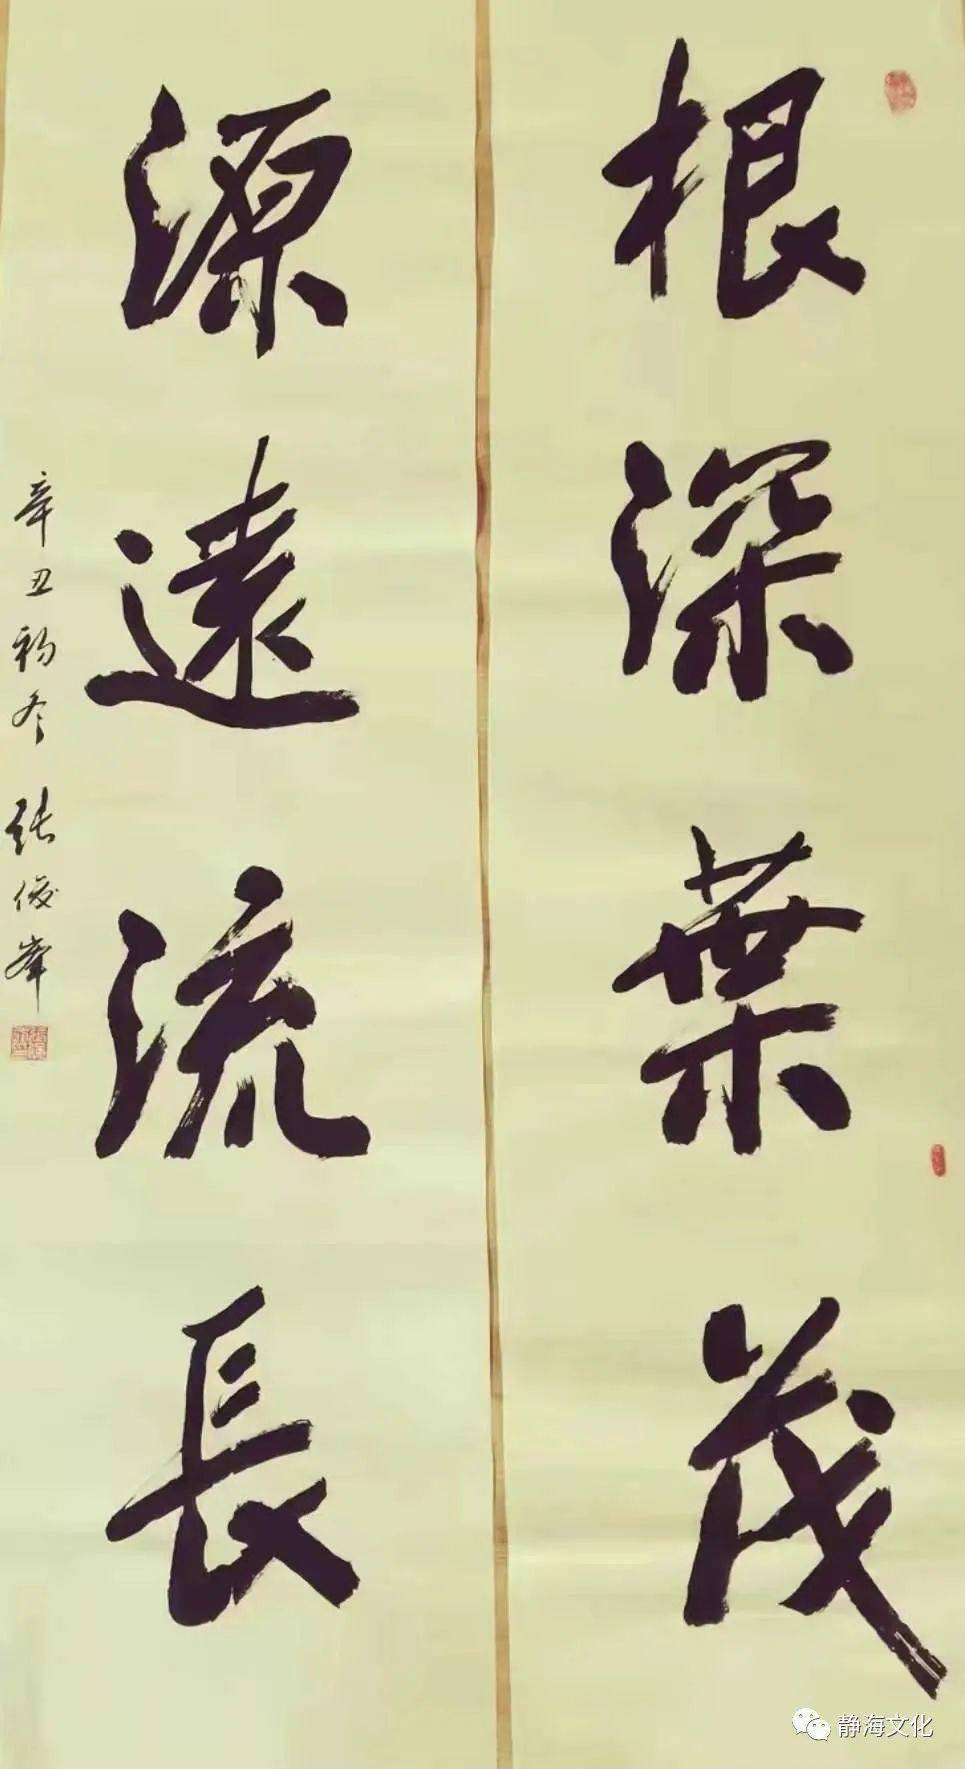 根深葉茂
源遠流長
辛丑初冬 张俊峰
静海文化